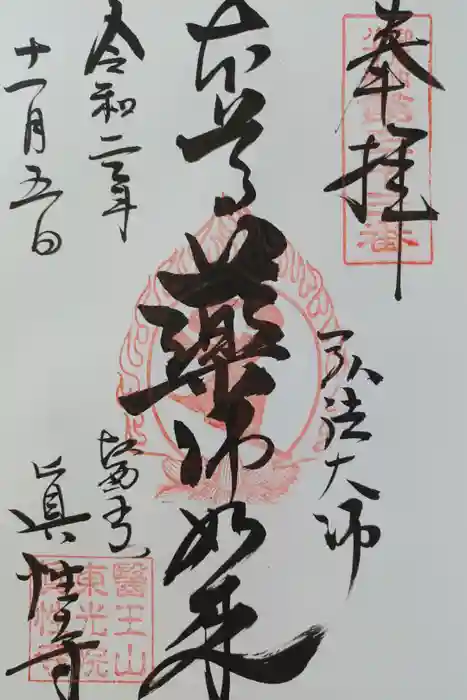 奉拝
弘法大師
本尊薬師如来
令和二年
十一月五日
鴬青山
眞性寺
醫王山
東光院
眞性寺